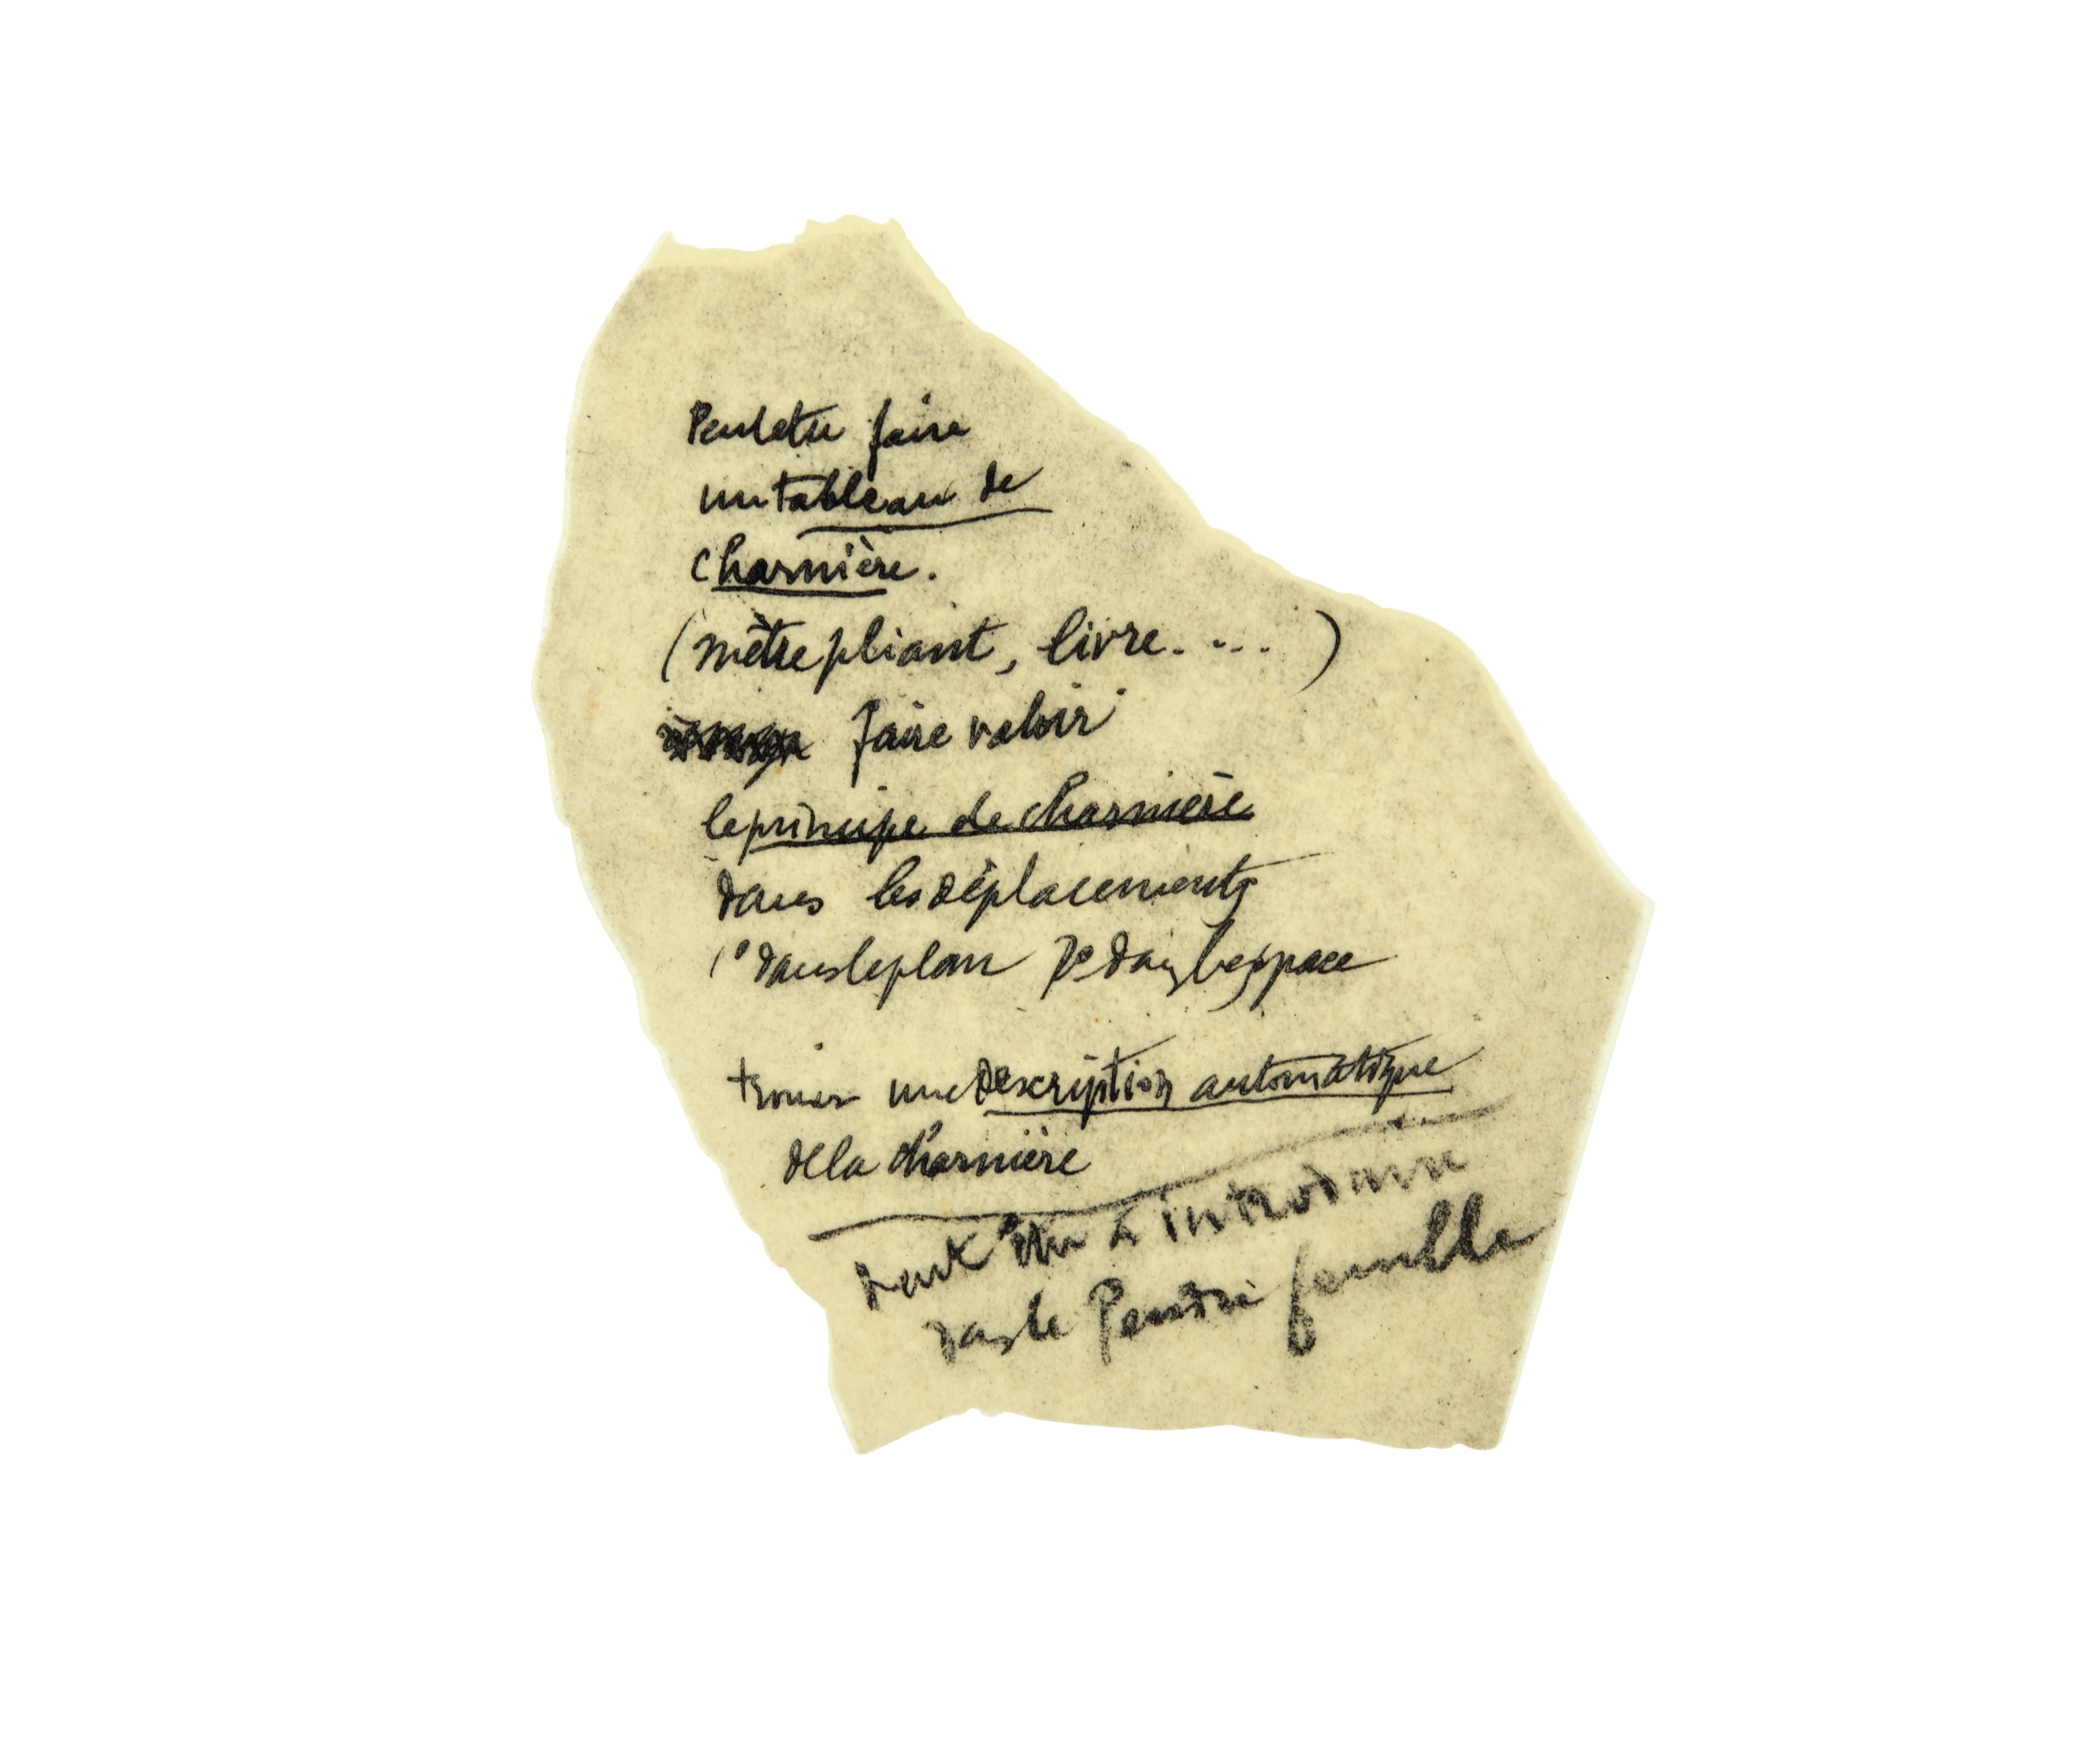 Peutetre faire
un tableau de
charnière.
(mètre pliant, livre. ...)
faire valoir
le principe de charnière
dans les déplacements
1° dans le plan 2° dans l'espace
trouver une description automatique
de la charnière
peut être à introduire
dans le Pendu femelle